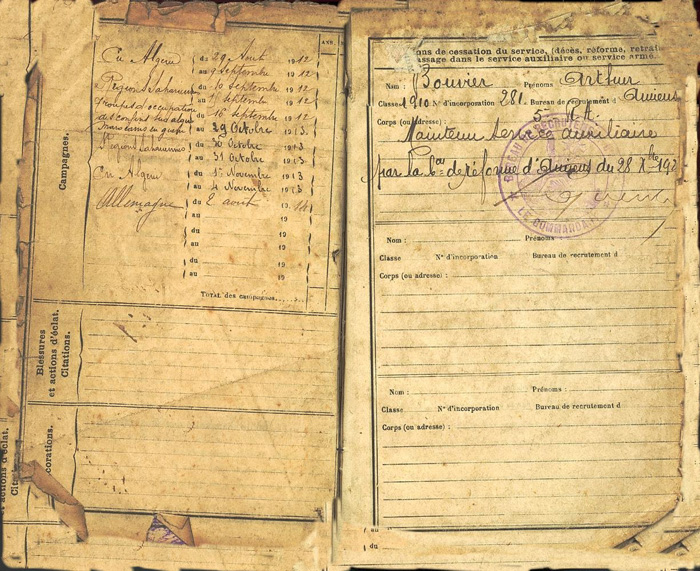 ANS.
Campagnes.
En Algérie du 29 Août 1912
au 9 Septembre 1912
Régions Sahariennes du 10 Septembre 1912
au 15 Septembre 1912
Troupes d'occupation
des confins sud algéro du 16 Septembre 1912
marocains en guerre au 29 Octobre 1913
Régions Sahariennes du 30 Octobre 1913
au 31 Octobre 1913
En Algérie du 1er Novembre 1913
au 4 Novembre 1913
Allemagne du 2 août 1914
au 19
du 19
au 19
du 19
au 19
TOTAL des campagnes
Blessures
et actions d'éclat.
Citations.
corations.
actions d'éclat.
ons de cessation du service, (décès, réforme, retrai
assage dans le service auxiliaire ou service armé.
Nom : Bouvier Prénoms Arthur
Classe 1910 N° d'incorporation 281 Bureau de recrutement d Amiens
Corps (ou adresse) :
Maintenu service auxiliaire
par la Con de réforme d'Amiens du 28 Xbre 192
LE COMMANDANT
Nom : Prénoms
Classe N° d'incorporation Bureau de recrutement d
Corps (ou adresse) :
Nom : Prénoms :
Classe N° d'incorporation Bureau de recrutement d
Corps (ou adresse) :
au
du